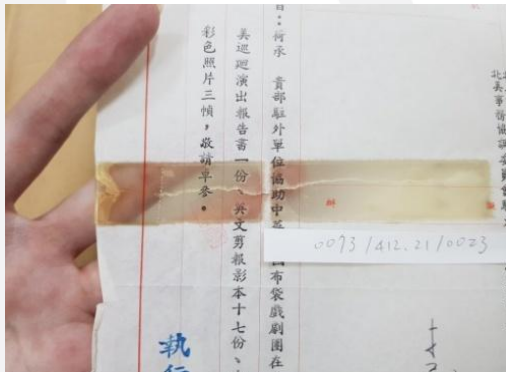 北美事務協調委員會駐
：荷承　貴部駐外單位協助中華民國布袋戲劇團在
美巡迴演出報告書一份、英文剪報影本十七份、
彩色照片三幀，敬請卓參。
0093/412.21/0023
執行